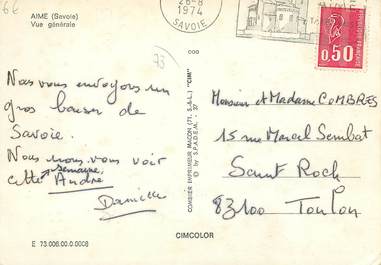 66
AIME (Savoie)
Vue générale
26-8
1974
SAVOIE
RÉPUBLIQUE FRANÇAISE
0,50
COD
73
Nous vous envoyons un
gros baiser de
Savoie.
Nous vous voir
semaine,
cette André
Danielle
COMBIER IMPRIMEUR MACON (71. S.-&-L.) "CIM"
© by S.P.A.D.E.M. 37
Monsieur et Madame COMBRES
15 rue Marcel Sembat
Saint Roch
83100 Toulon
E 73.006.00.0.0008
CIMCOLOR